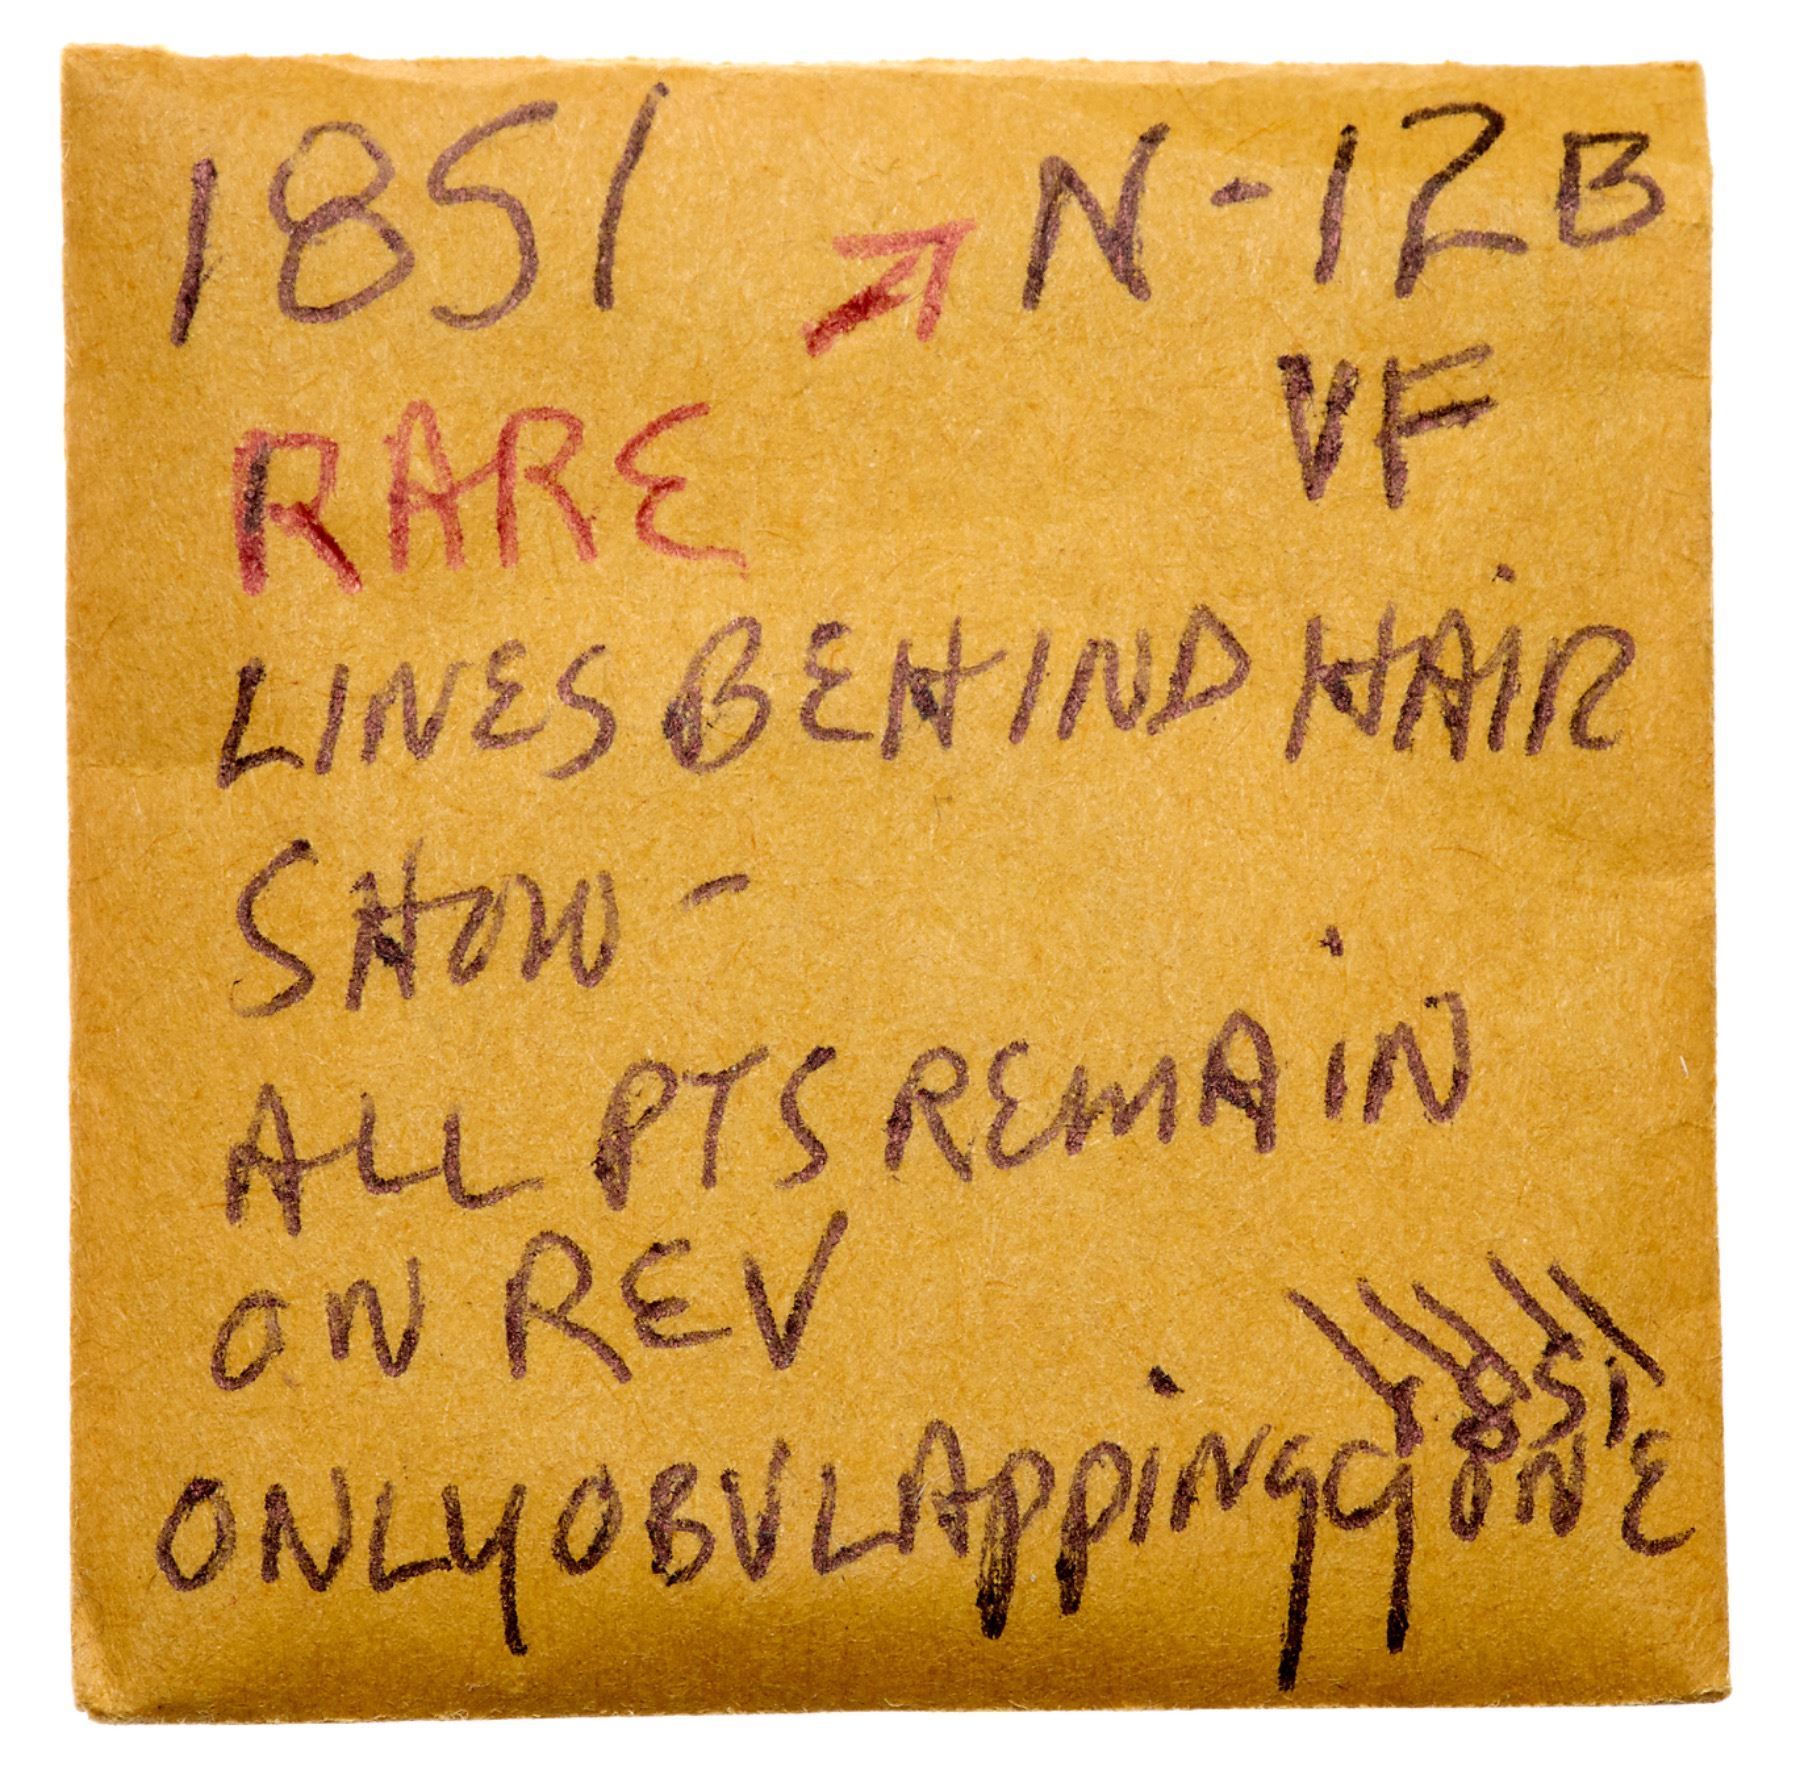 1851 N-12B
VF
RARE
LINES BEHIND HAIR
SHOW -
ALL PTS REMAIN
ON REV
ONLY OBV LAPPING GONE